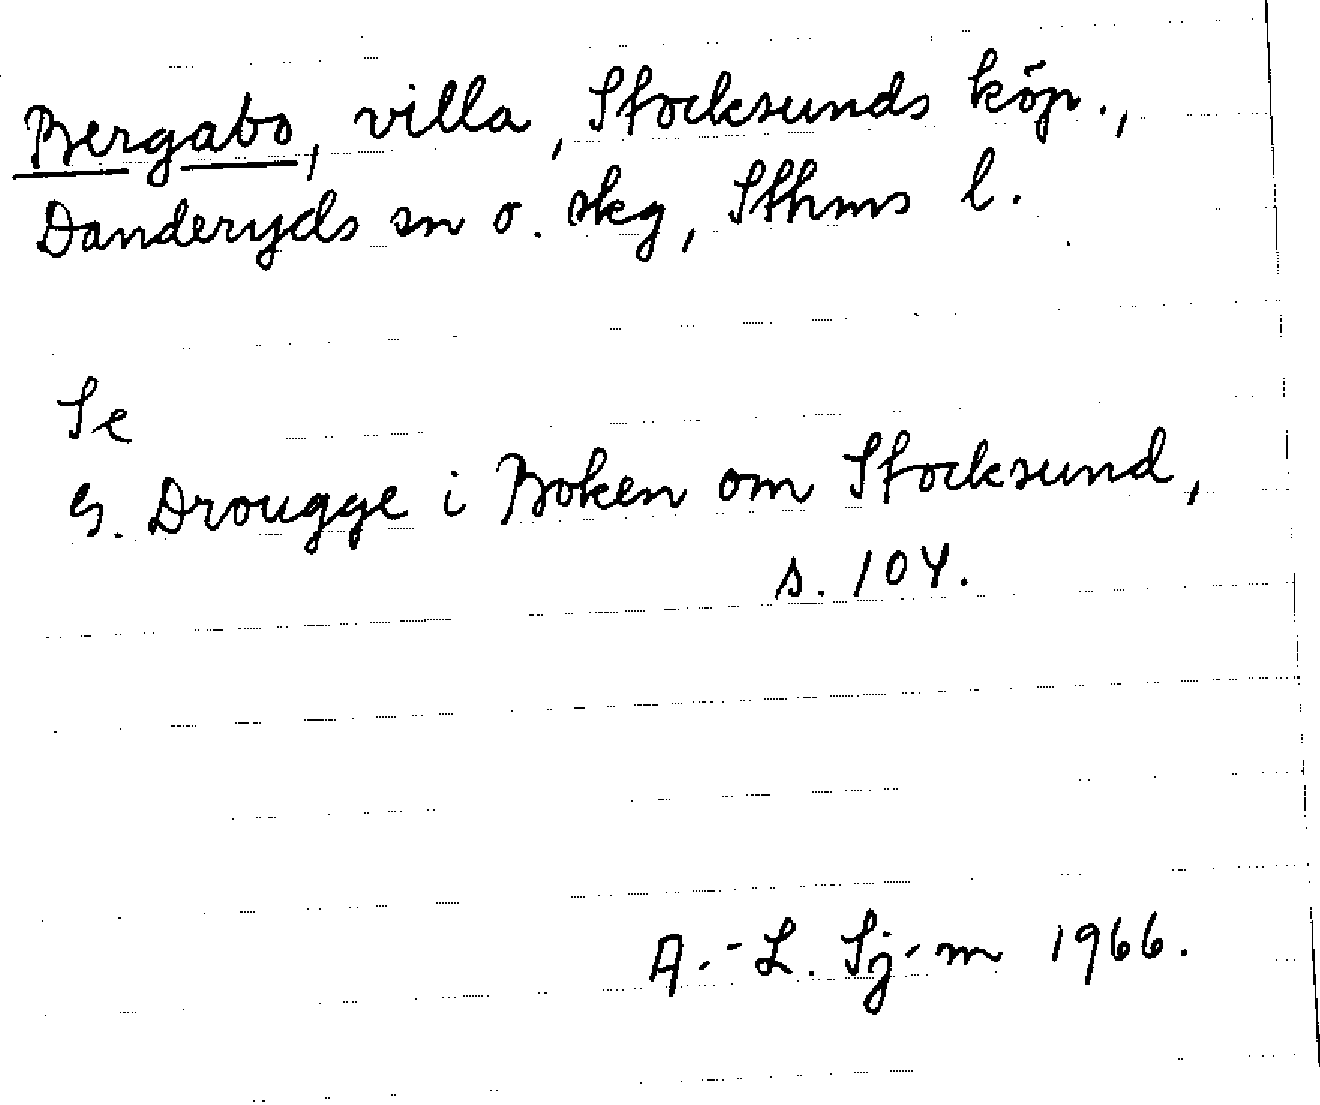 Bergabo, villa, Stocksunds köp.,
Danderyds sn o. skg, Sthms l.
Se
G. Drougge i Boken om Stocksund,
s. 104.
A.-L. Sj-m 1966.